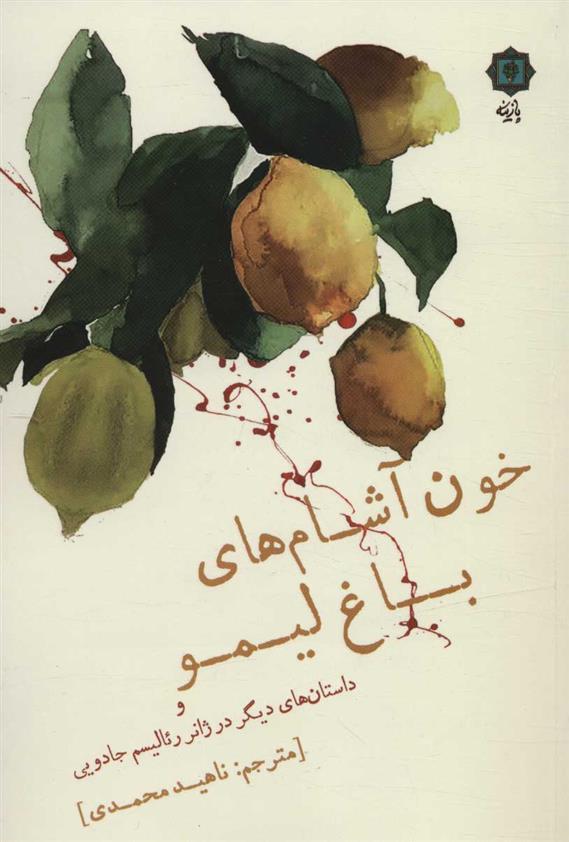 پازینه
خون آشام‌های
باغ لیمو
و
داستان‌های دیگر در ژانر رئالیسم جادویی
[مترجم: ناهید محمدی]